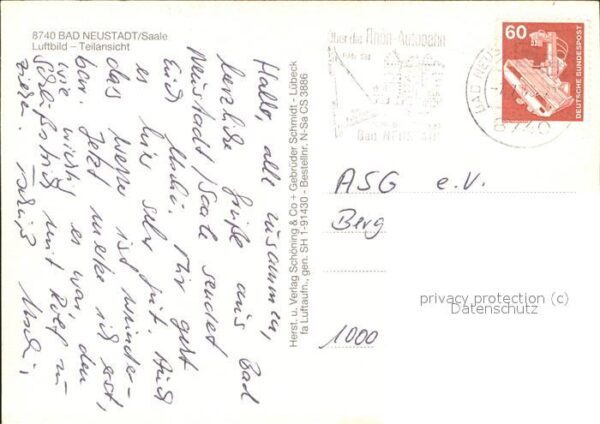 8740 BAD NEUSTADT/Saale
Luftbild – Teilansicht
Hallo, alle zusammen,
herzliche Grüße aus Bad
Neustadt/Saale sendet
Euch Uschi. Mir geht
es hier sehr gut. Auch
das ist wunder-
bar. Jetzt merke ich erst,
wie wichtig es war, den
mit Rolf zu
ziehen.
Uschi
Herst. u. Verlag Schöning & Co + Gebrüder Schmidt - Lübeck
fa Luftaufn., gen. SH 1-91430 - Bestellnr. N-Sa CS 3886
Über die Rhön-Autobahn
60
DEUTSCHE BUNDESPOST
ASG e.V.
Berg
1000
privacy protection (c)
Datenschutz